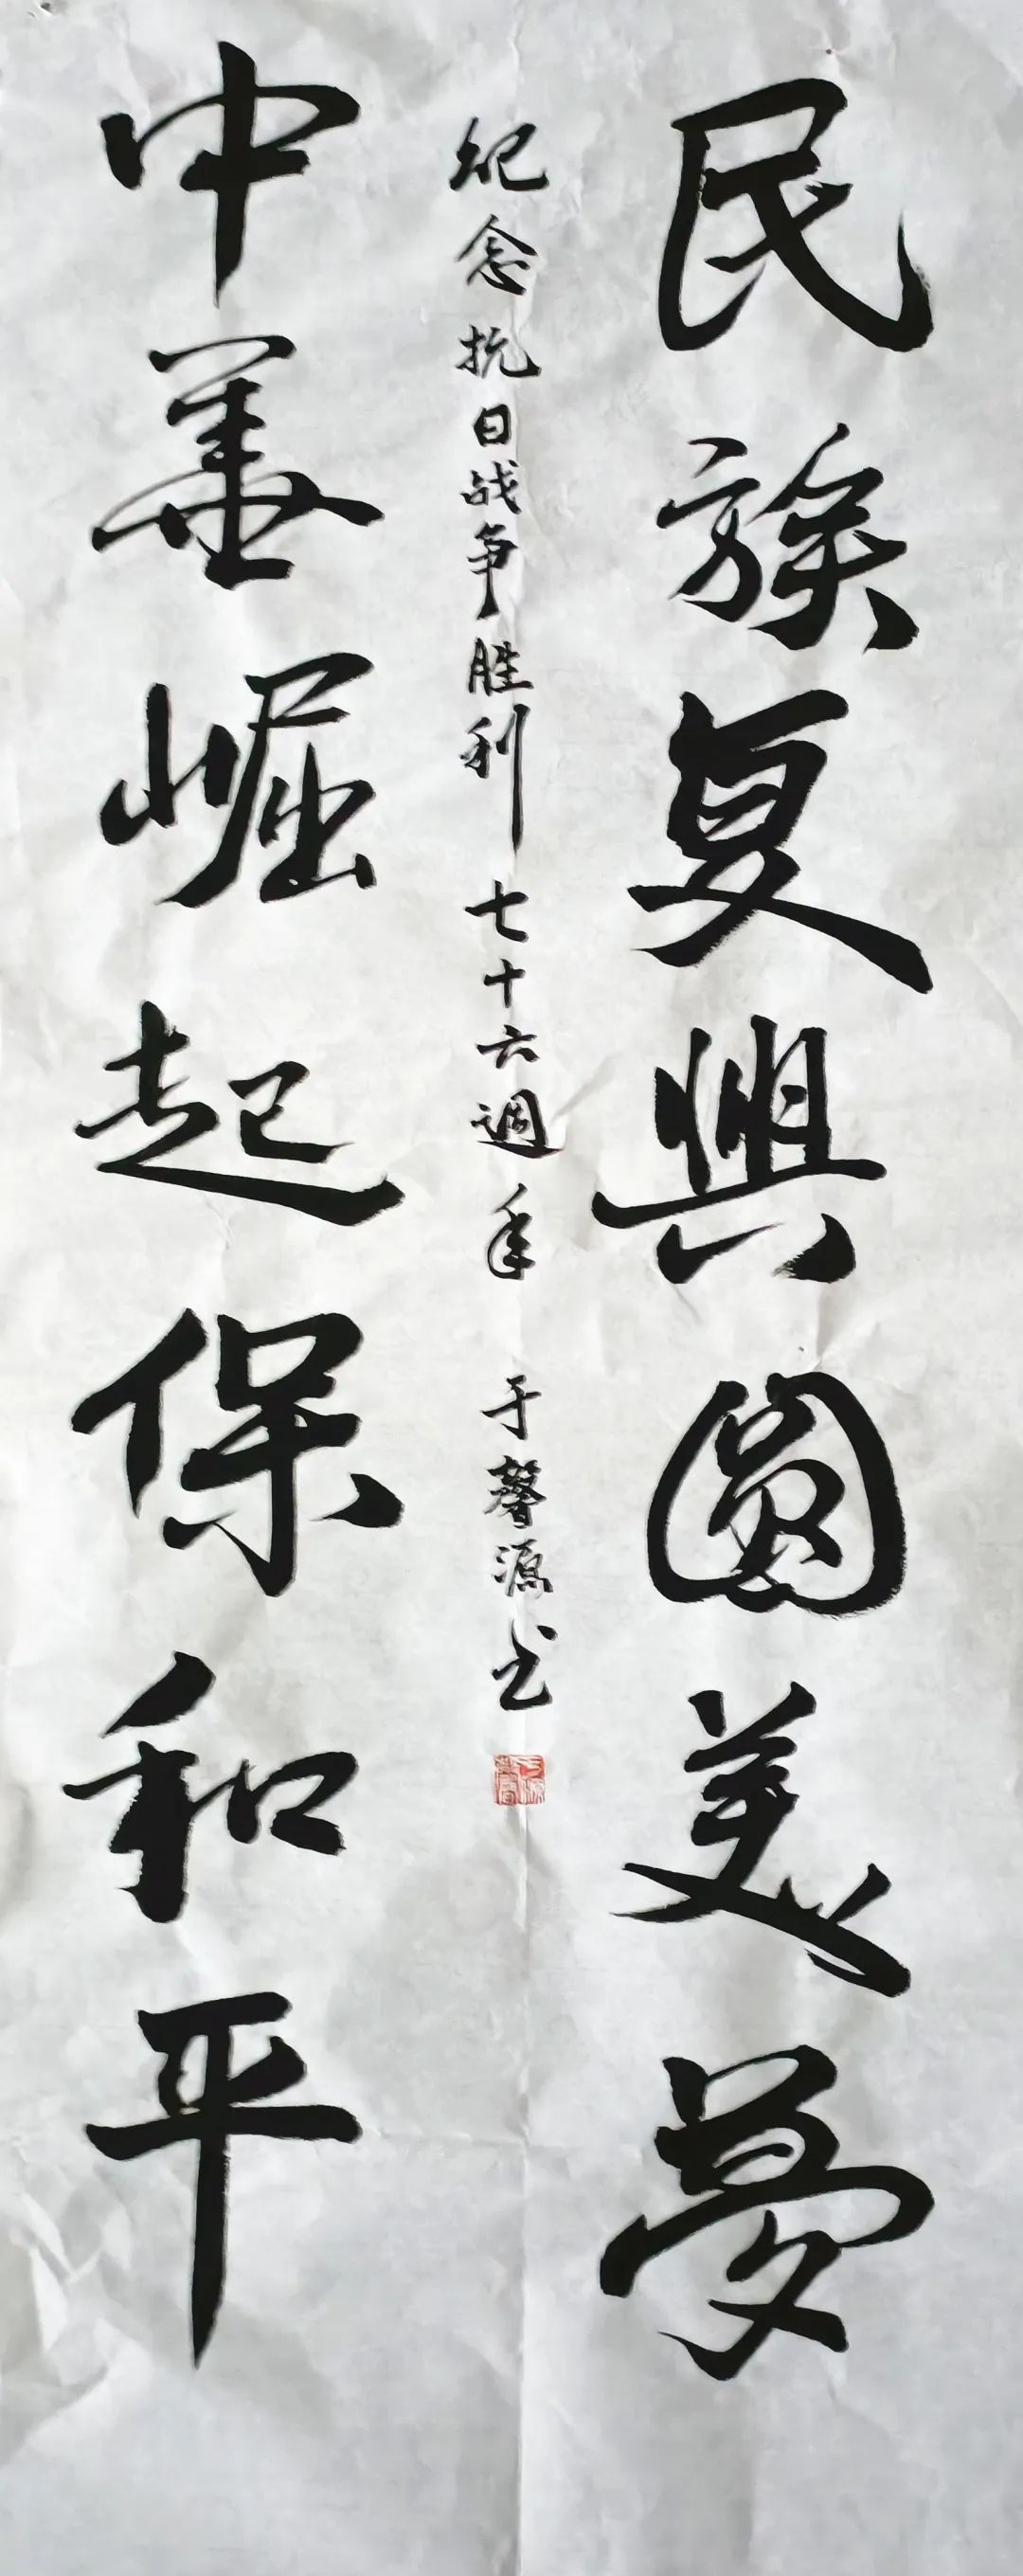 民族复興圓美夢
纪念抗日战争胜利七十六週年 于馨源书
中華崛起保和平